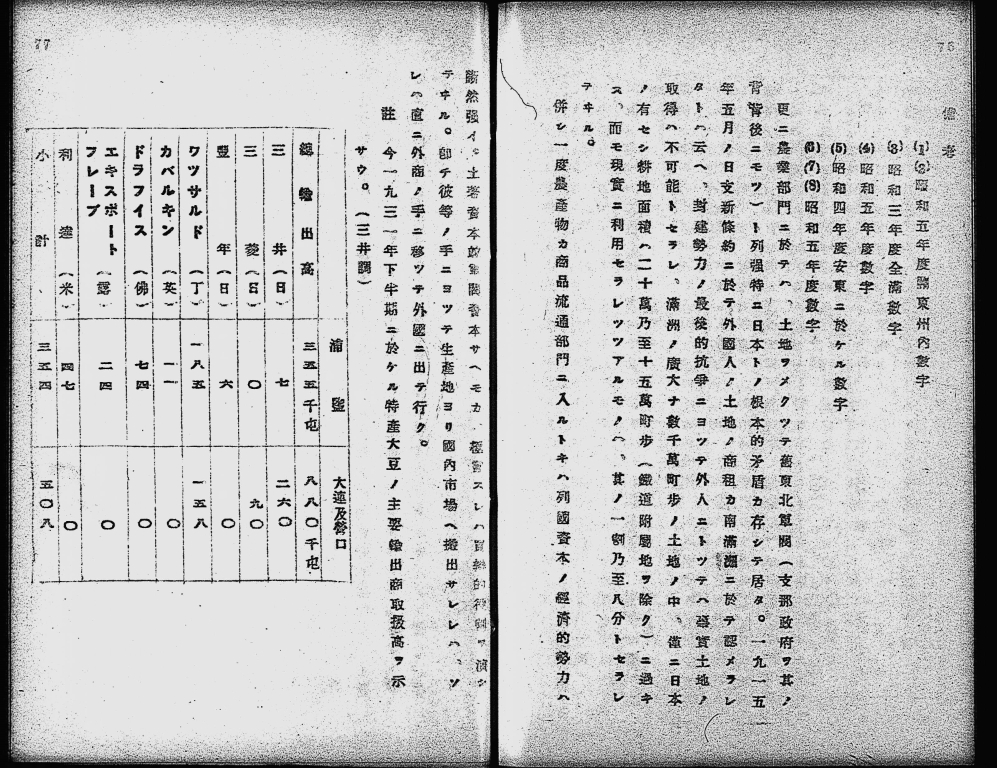 76
備考
(1)(2)昭和五年度關東州內數字
(3)昭和三年度全滿數字
(4)昭和五年度數字
(5)昭和四年度安東ニ於ケル數字
(6)(7)(8)昭和五年度數字
更ニ農業部門ニ於テハ、土地ヲメグツテ舊東北軍閥(支那政府ヲ其ノ
背後ニモツ)ト列强特ニ日本トノ根本的矛盾カ存シテ居タ。一九一五
年五月ノ日支新條約ニ於テ外國人ノ土地ノ商租カ南滿洲ニ於テ認メラレ
タトハ云ヘ、封建勢力ノ最後的抗爭ニヨツテ外人ニトツテハ事實土地ノ
取得ハ不可能トセラレ、滿洲ノ廣大ナ數千萬町步ノ土地ノ中、僅ニ日本
ノ有セシ耕地面積ハ二十萬乃至十五萬町步(鐵道附屬地ヲ除ク)ニ過キ
ス、而モ現實ニ利用セラレツツアルモノハ、其ノ一割乃至八分トセラレ
テヰル。
併シ一度農產物カ商品流通部門ニ入ルトキハ列國資本ノ經濟的勢力ハ
77
斷然强イ。土著資本
サヘモカ、
テヰル。卽チ彼等ノ手ニヨツテ生產地ヨリ國內市場ヘ搬出サレレハ、ソ
レハ直ニ外商ノ手ニ移ツテ外國ニ出テ行ク。
註 今一九三一年下半期ニ於ケル特產大豆ノ主要輸出商取扱高ヲ示
サウ。(三井調)
浦鹽 大連及營口
總輸出高 三五五千屯 八八〇千屯
三井(日) 七 二六〇
三菱(日) 〇 九〇
豐年(日) 六 〇
ワツサルド(丁) 一八五 一五八
カバルキン(英) 一一 〇
ドラフイス(佛) 七四 〇
エキスポートフレーブ(露) 二四 〇
利達(米) 四七 〇
小計 三五四 五〇八